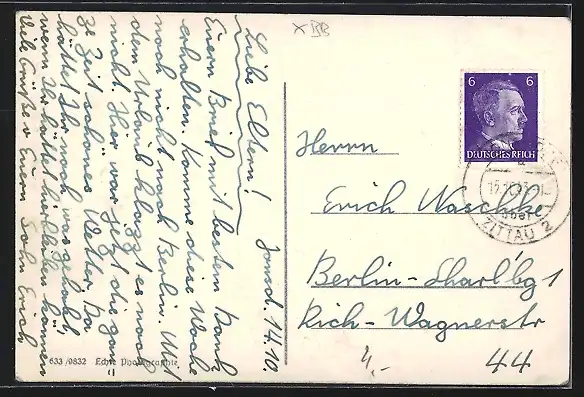 × BB
Liebe Eltern! Jonsd. 14.10.
Euern Brief mit bestem Dank
erhalten. Komme diese Woche
noch nicht nach Berlin. Mit
dem Urlaub klappt es noch
nicht. Hier war jetzt die gan-
ze Zeit schönes Wetter. Da
hättet Ihr noch was gehabt,
wenn Ihr hättet bleiben können
Viele Grüße v. Euern Sohn Erich
633/9832 Echte Photographie
6 6
DEUTSCHES REICH
über
ZITTAU 2
Herrn
Erich Waschke
Berlin-Charl'bg 1
Rich-Wagnerstr
44
4,-